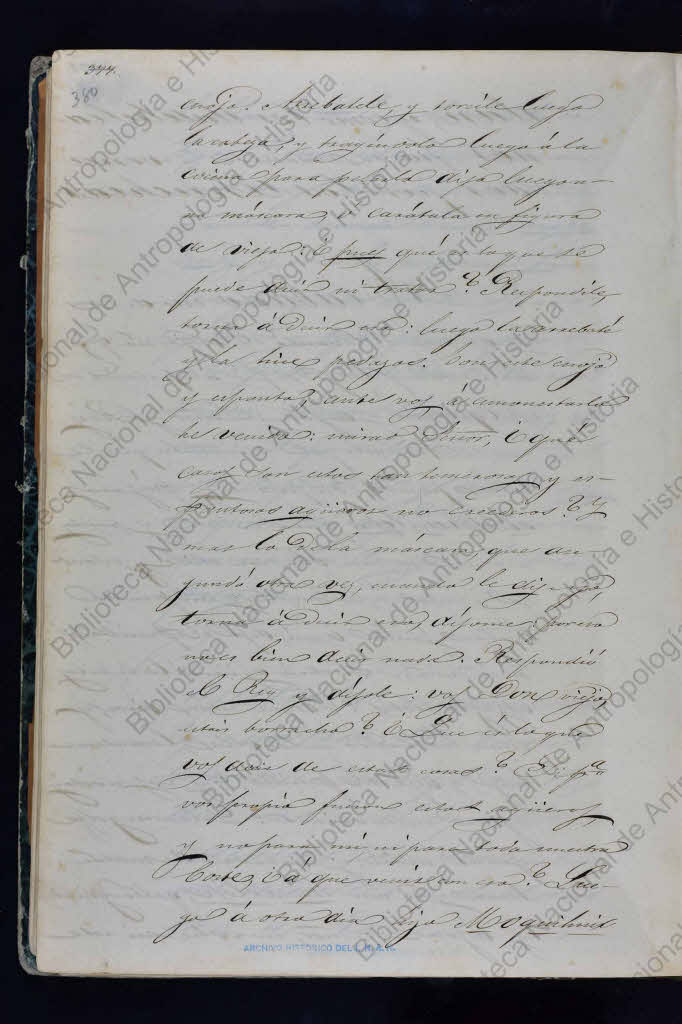 344.
380
enojo. Arrebatéle, y torcíle luego
la cabeza, y trayéndolo luego á la
cocina para pelarlo dijo luego u-
na máscara, ó carátula en figura
de vieja: ¿pues qué es lo que se
puede decir ni tratar? Respondíle,
torna á decir eso: luego la arrebaté
y la hice pedazos. Con este enojo
y espanto, ante vos á amonestarlo
he venido: mirad Señor, ¿qué
casos son estos tan temerosos y es-
pantosos agüeros no creederos? Y
mas lo de la máscara, que se-
gundó otra vez, cuando le dije
torna á decir eso, díjome: por eso
no es bien decir nada. Respondió
el Rey y díjole: vos Don viejo,
estais borracho? ¿Que es lo que
vos decis de estas cosas? Si pª
vos propio fueran estos agüeros,
y no para mí, ni para toda nuestra
Corte, ¿á que venis con eso? Lue-
go á otro dia dijo Moquihuix
ARCHIVO HISTORICO DEL I. N. A. H.
Biblioteca Nacional de Antropología e Historia